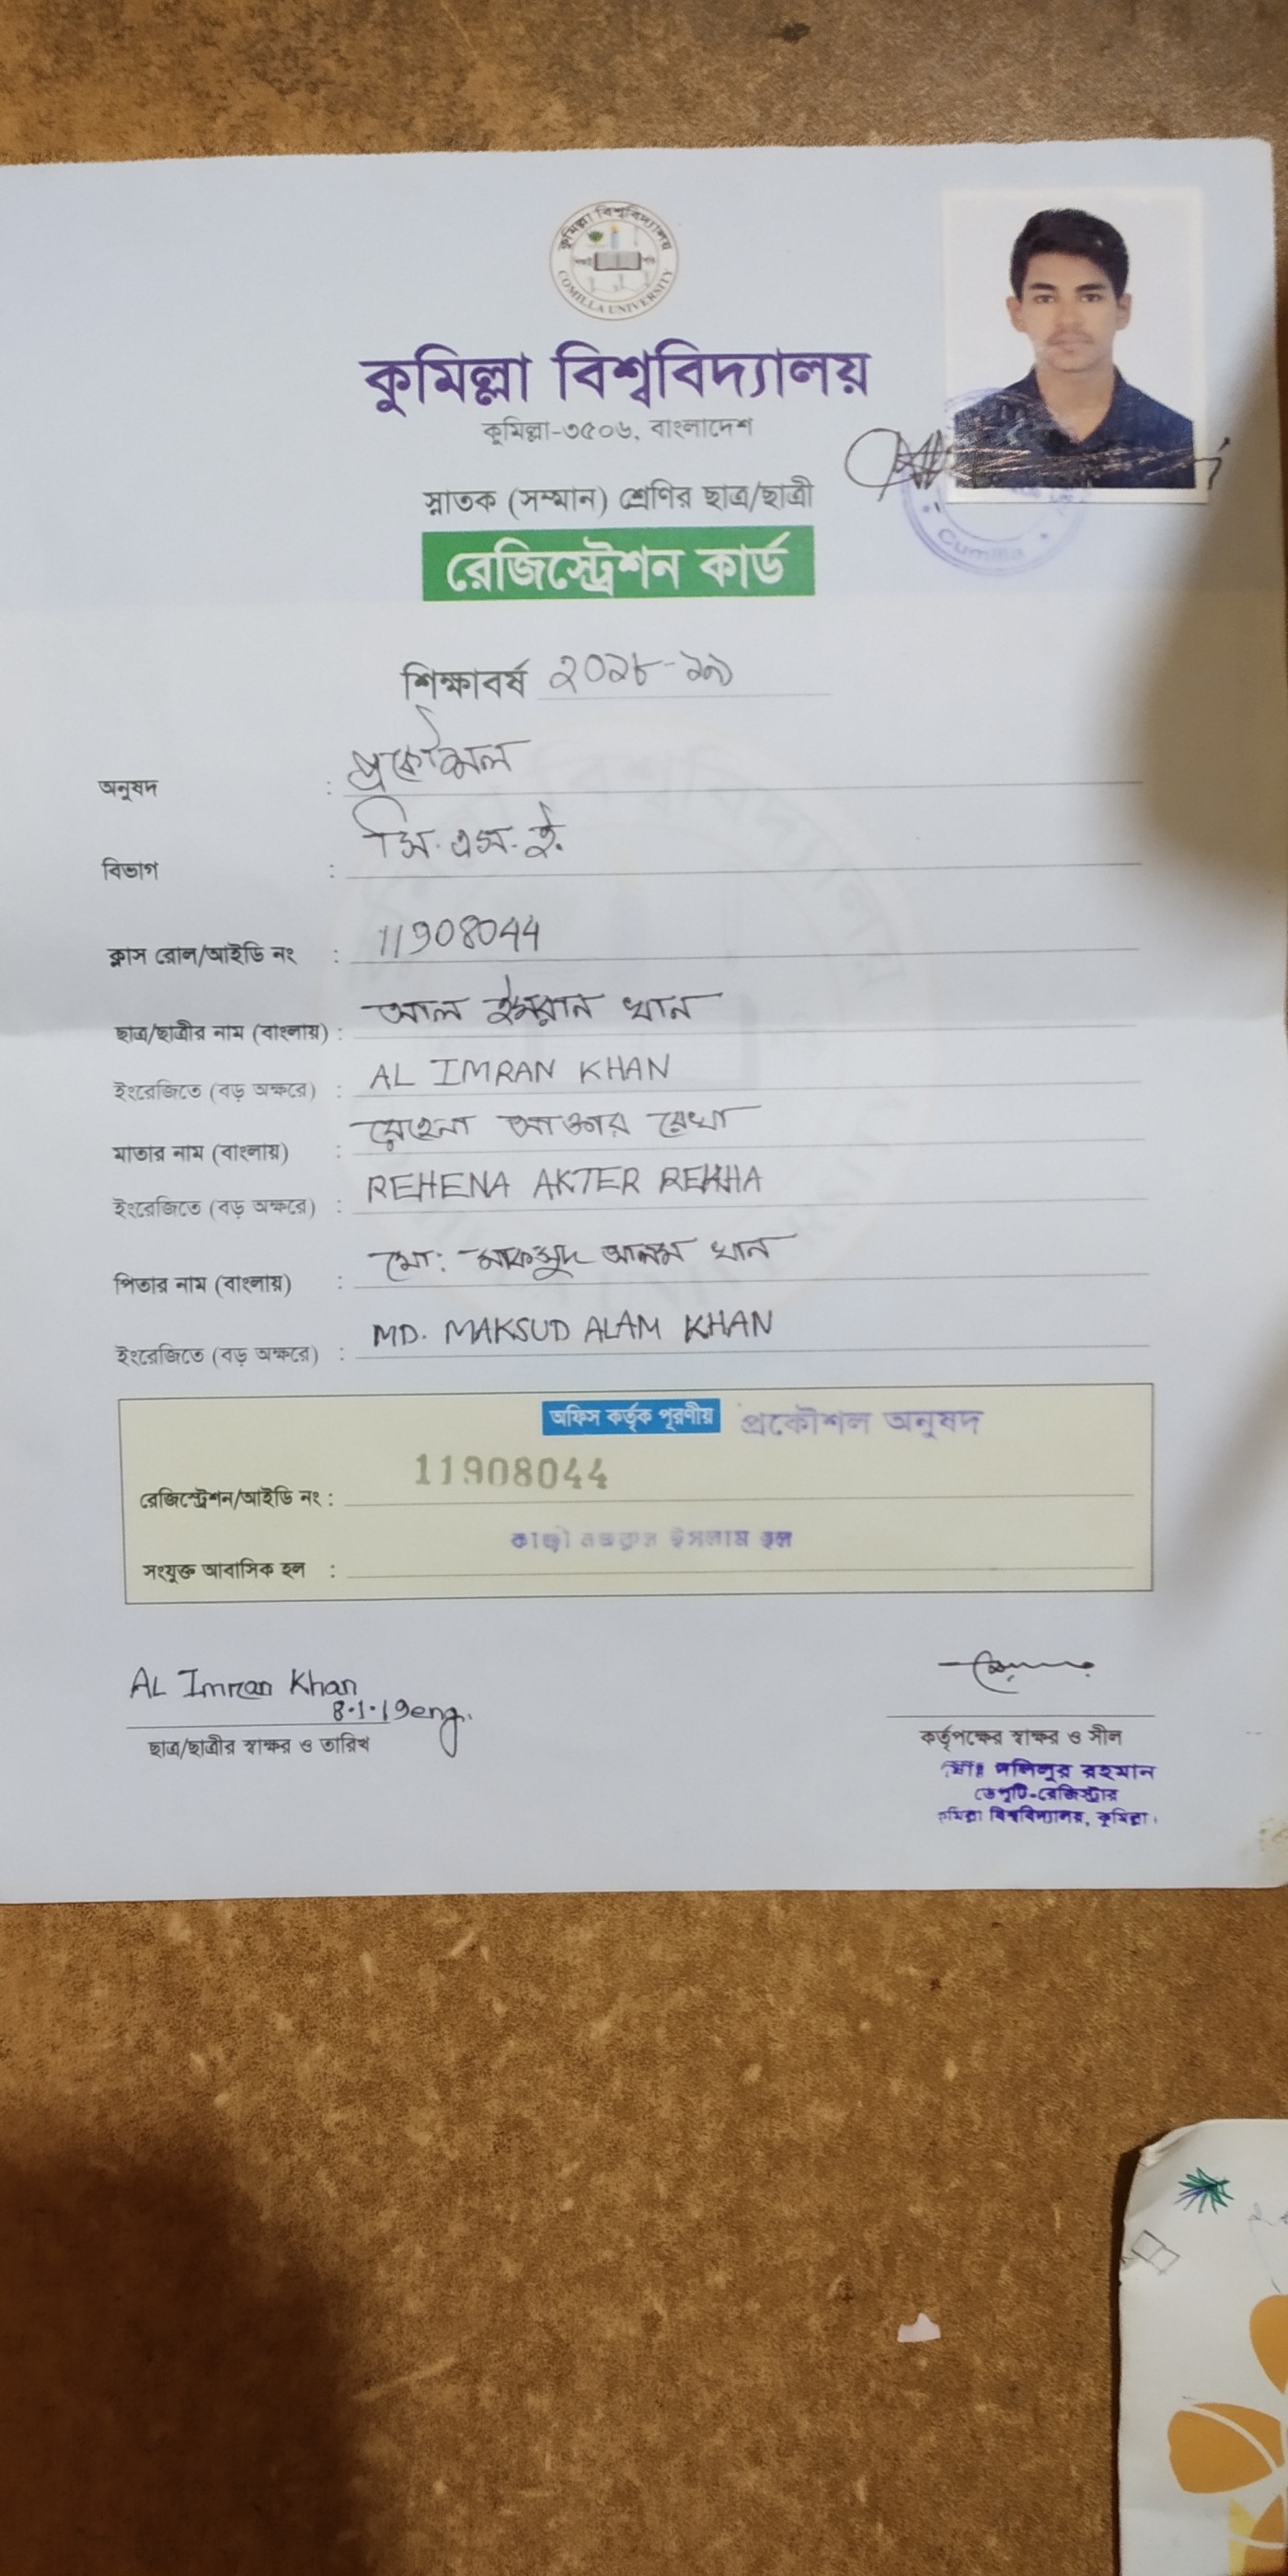 কুমিল্লা বিশ্ববিদ্যালয়
COMILLA UNIVERSITY
কুমিল্লা বিশ্ববিদ্যালয়
কুমিল্লা-৩৫০৬, বাংলাদেশ
স্নাতক (সম্মান) শ্রেণির ছাত্র/ছাত্রী
Cumilla
রেজিস্ট্রেশন কার্ড
শিক্ষাবর্ষ ২০১৮-১৯
অনুষদ : প্রকৌশল
বিভাগ : সি.এস.ই.
ক্লাস রোল/আইডি নং : 11908044
ছাত্র/ছাত্রীর নাম (বাংলায়) : আল ইমরান খান
ইংরেজিতে (বড় অক্ষরে) : AL IMRAN KHAN
মাতার নাম (বাংলায়) : রেহেনা আক্তার রেখা
ইংরেজিতে (বড় অক্ষরে) : REHENA AKTER REKHA
পিতার নাম (বাংলায়) : মো: মাকসুদ আলম খান
ইংরেজিতে (বড় অক্ষরে) : MD. MAKSUD ALAM KHAN
অফিস কর্তৃক পূরণীয় প্রকৌশল অনুষদ
রেজিস্ট্রেশন/আইডি নং : 11908044
সংযুক্ত আবাসিক হল : কাজী নজরুল ইসলাম হল
AL Imran Khan
8.1.19eng.
ছাত্র/ছাত্রীর স্বাক্ষর ও তারিখ
কর্তৃপক্ষের স্বাক্ষর ও সীল
মোঃ রহমান
ডেপুটি-রেজিস্ট্রার
কুমিল্লা বিশ্ববিদ্যালয়, কুমিল্লা।